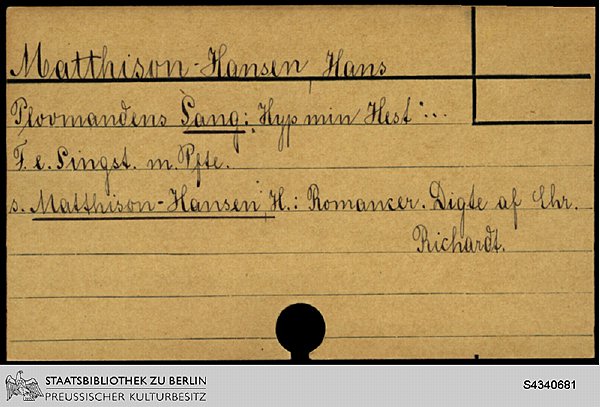 Matthison-Hansen, Hans
Plovmandens Sang: "Hyp min Hest"...
F. e. Singst. m. Pfte.
s. Matthison-Hansen, H.: Romancer. Digte af Chr.
Richardt.
STAATSBIBLIOTHEK ZU BERLIN
PREUSSISCHER KULTURBESITZ
S4340681